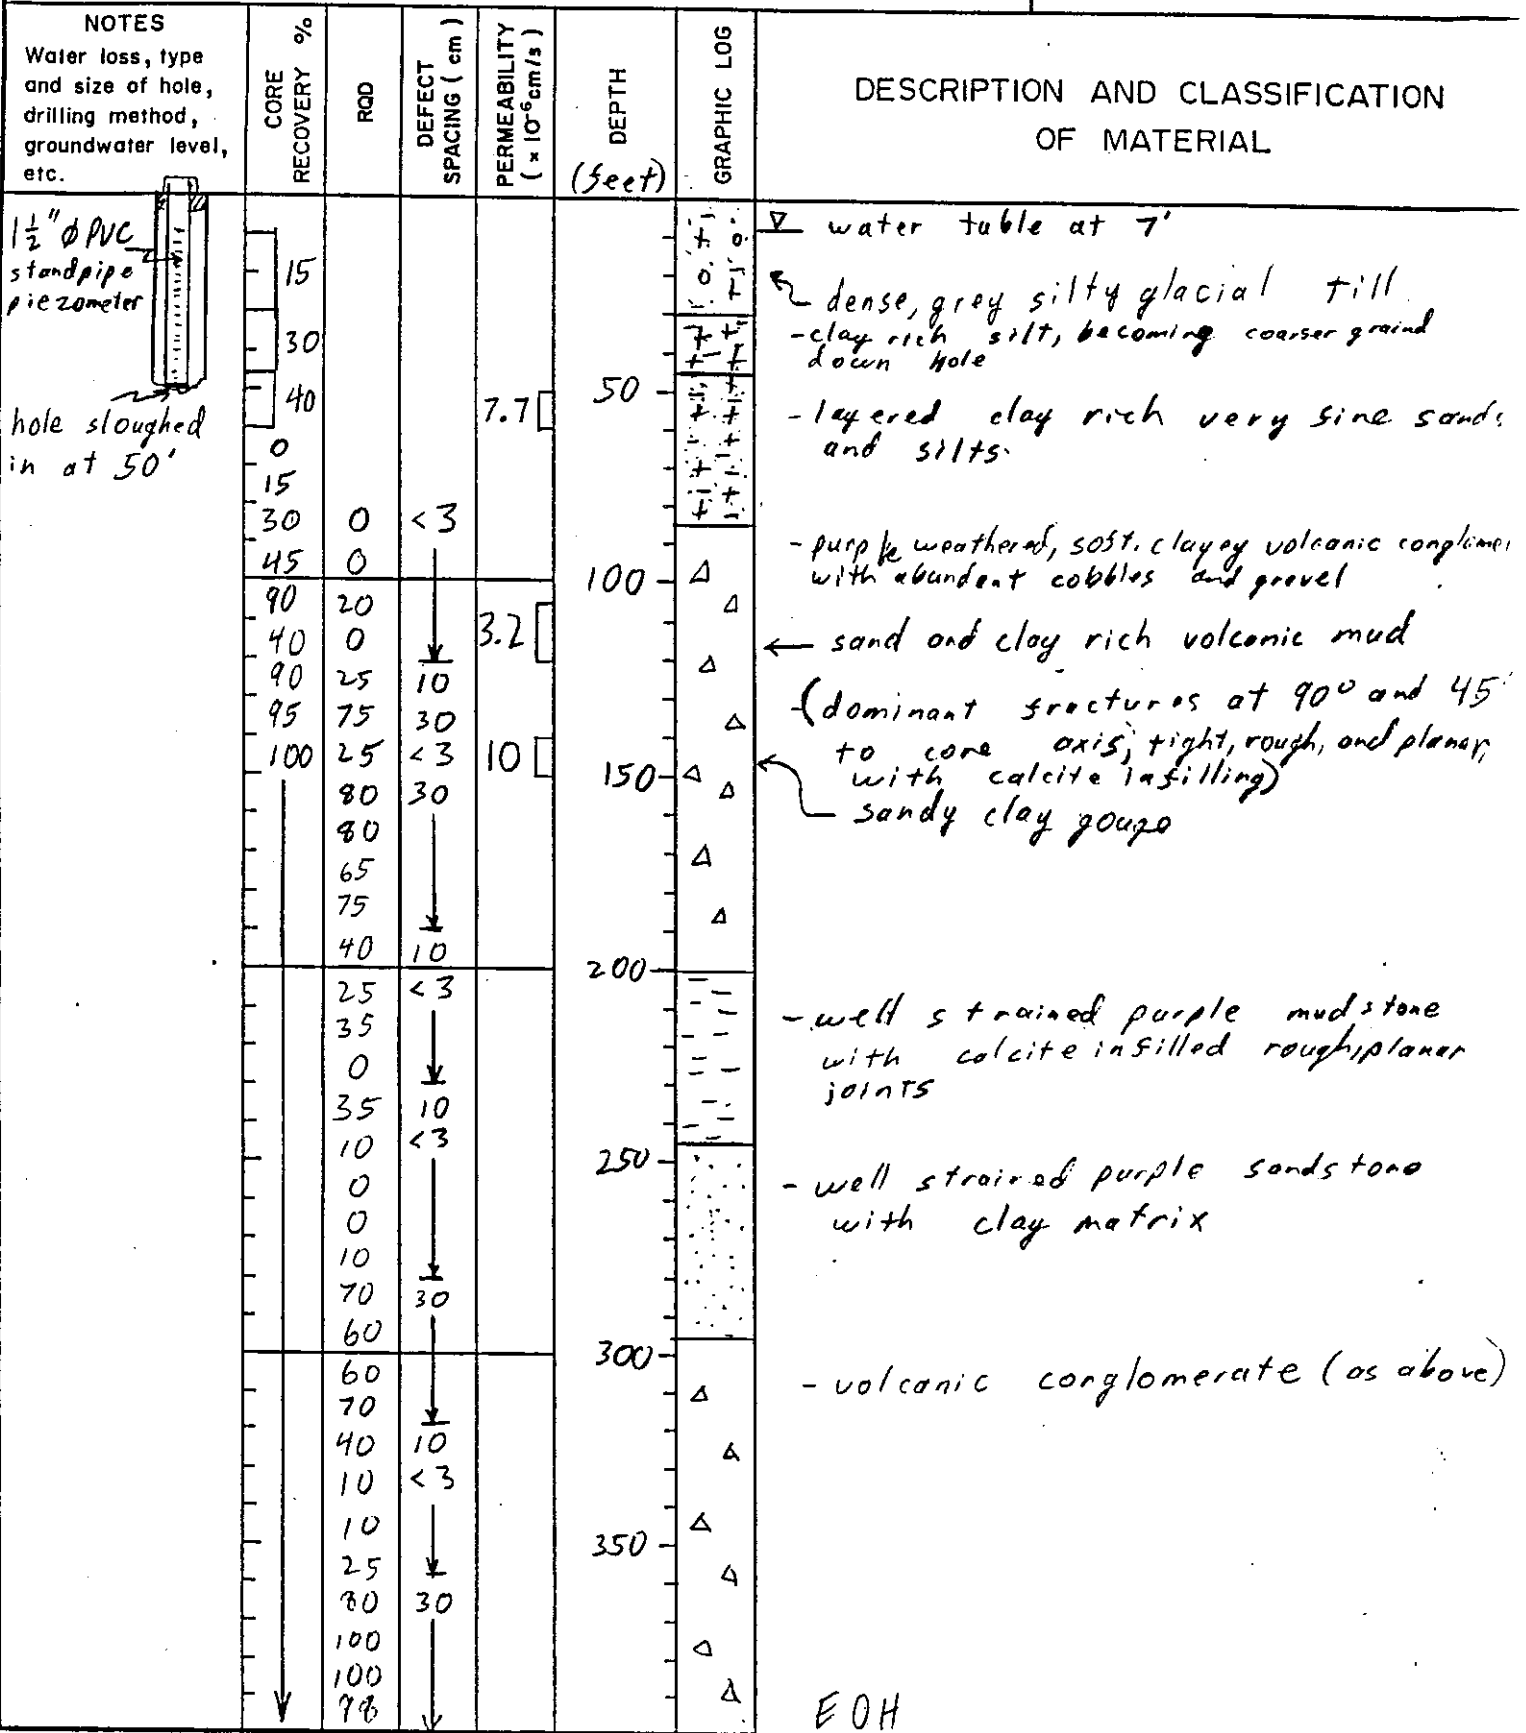 NOTES
Water loss, type
and size of hole,
drilling method,
groundwater level,
etc.
CORE
RECOVERY %
RQD
DEFECT
SPACING (cm)
PERMEABILITY
(× 10⁻⁶ cm/s)
DEPTH
(feet)
GRAPHIC LOG
DESCRIPTION AND CLASSIFICATION
OF MATERIAL
1½" ø PVC
standpipe
piezometer
hole sloughed
in at 50'
15
30
40
0
15
30 0 <3
45 0
90 20
40 0
90 25 10
95 75 30
100 25 <3
80 30
80
65
75
40 10
25 <3
35
0
35 10
10 <3
0
0
10
70 30
60
60
70
40 10
10 <3
10
25
80 30
100
100
98
7.7
3.2
10
50
100
150
200
250
300
350
water table at 7'
dense, grey silty glacial till
- clay rich silt, becoming coarser graind
down hole
- layered clay rich very fine sands
and silts.
- purple weathered, soft, clayey volcanic
with abundent cobbles and gravel
sand and clay rich volcanic mud
(dominant fractures at 90° and 45°
to core axis, tight, rough, and planar,
with calcite infilling)
sandy clay gouge
- well strained purple mudstone
with calcite infilled rough, planar
joints
- well strained purple sandstone
with clay matrix
- volcanic conglomerate (as above)
EOH